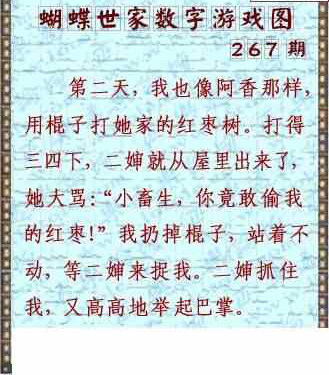 蝴蝶世家数字游戏图
267期
第二天，我也像阿香那样，
用棍子打她家的红枣树。打得
三四下，二婶就从屋里出来了，
她大骂：“小畜生，你竟敢偷我
的红枣！”我扔掉棍子，站着不
动，等二婶来捉我。二婶抓住
我，又高高地举起巴掌。